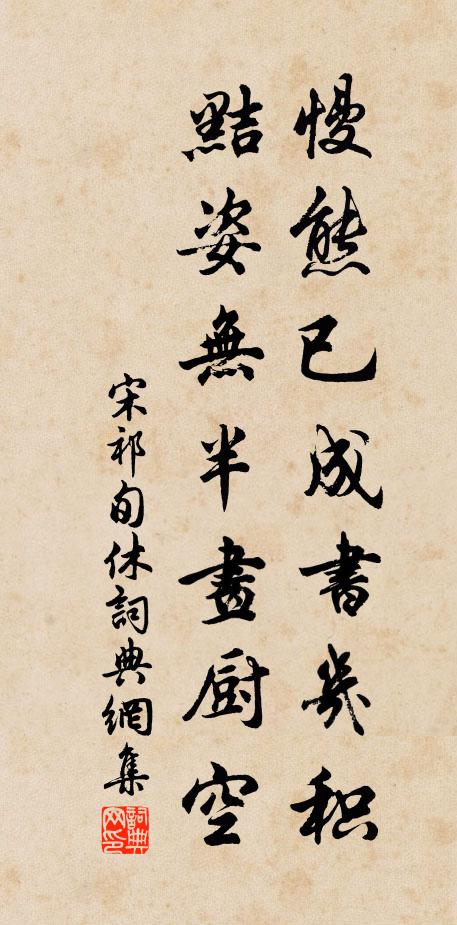 慢態已成書幾积
黠姿無半畫厨空
宋祁旬休詞典網集
詞典网印